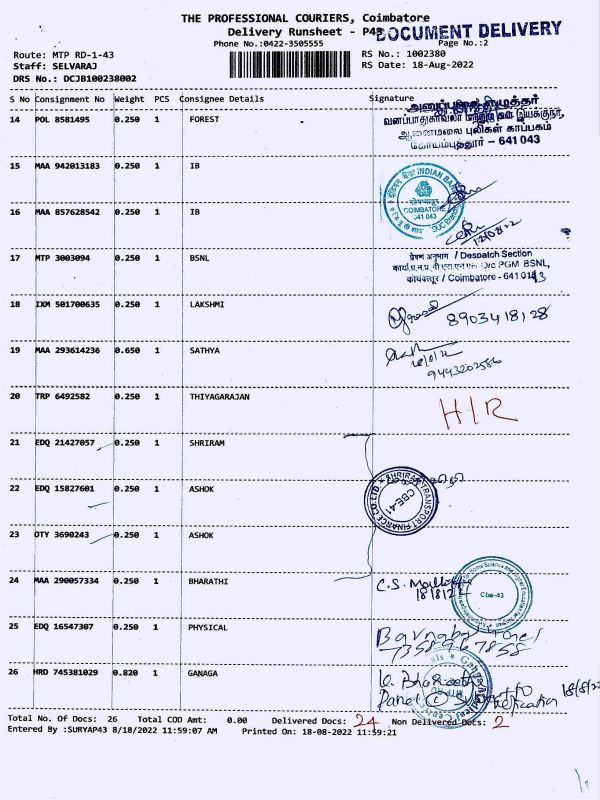 THE PROFESSIONAL COURIERS, Coimbatore
Delivery Runsheet - P43
DOCUMENT DELIVERY
Phone No.:0422-3505555
Page No.:2
Route: MTP RD-1-43
RS No.: 1002380
Staff: SELVARAJ
RS Date: 18-Aug-2022
DRS No.: DCJB100238002
S No Consignment No Weight PCS Consignee Details Signature
14 POL 8581495 0.250 1 FOREST
வனப்பாதுகாவலர் மற்றும் கள இயக்குநர்,
ஆனைமலை புலிகள் காப்பகம்
கோயம்புத்தூர் – 641 043
15 MAA 942013183 0.250 1 IB
INDIAN BANK
COIMBATORE
641 043
16 MAA 857628542 0.250 1 IB
17 MTP 3003094 0.250 1 BSNL
प्रेषण अनुभाग / Despatch Section
O/o PGM BSNL,
कोयंबत्तूर / Coimbatore - 641 043
18 IXM 501700635 0.250 1 LAKSHMI
8903418128
19 MAA 293614236 0.650 1 SATHYA
9443202586
20 TRP 6492582 0.250 1 THIYAGARAJAN
H/R
21 EDQ 21427057 0.250 1 SHRIRAM
22 EDQ 15827601 0.250 1 ASHOK
SHRIRAM TRANSPORT FINANCE CO.LTD.
CBE-41
23 OTY 3690243 0.250 1 ASHOK
24 MAA 290057334 0.250 1 BHARATHI
C.S.
18/8/22
Cbe-43
25 EDQ 16547307 0.250 1 PHYSICAL
7358967858
26 HRD 745381029 0.820 1 GANAGA
18/8/22
Total No. Of Docs: 26 Total COD Amt: 0.00 Delivered Docs: 24 Non Delivered Docs: 2
Entered By :SURYAP43 8/18/2022 11:59:07 AM Printed On: 18-08-2022 11:59:21